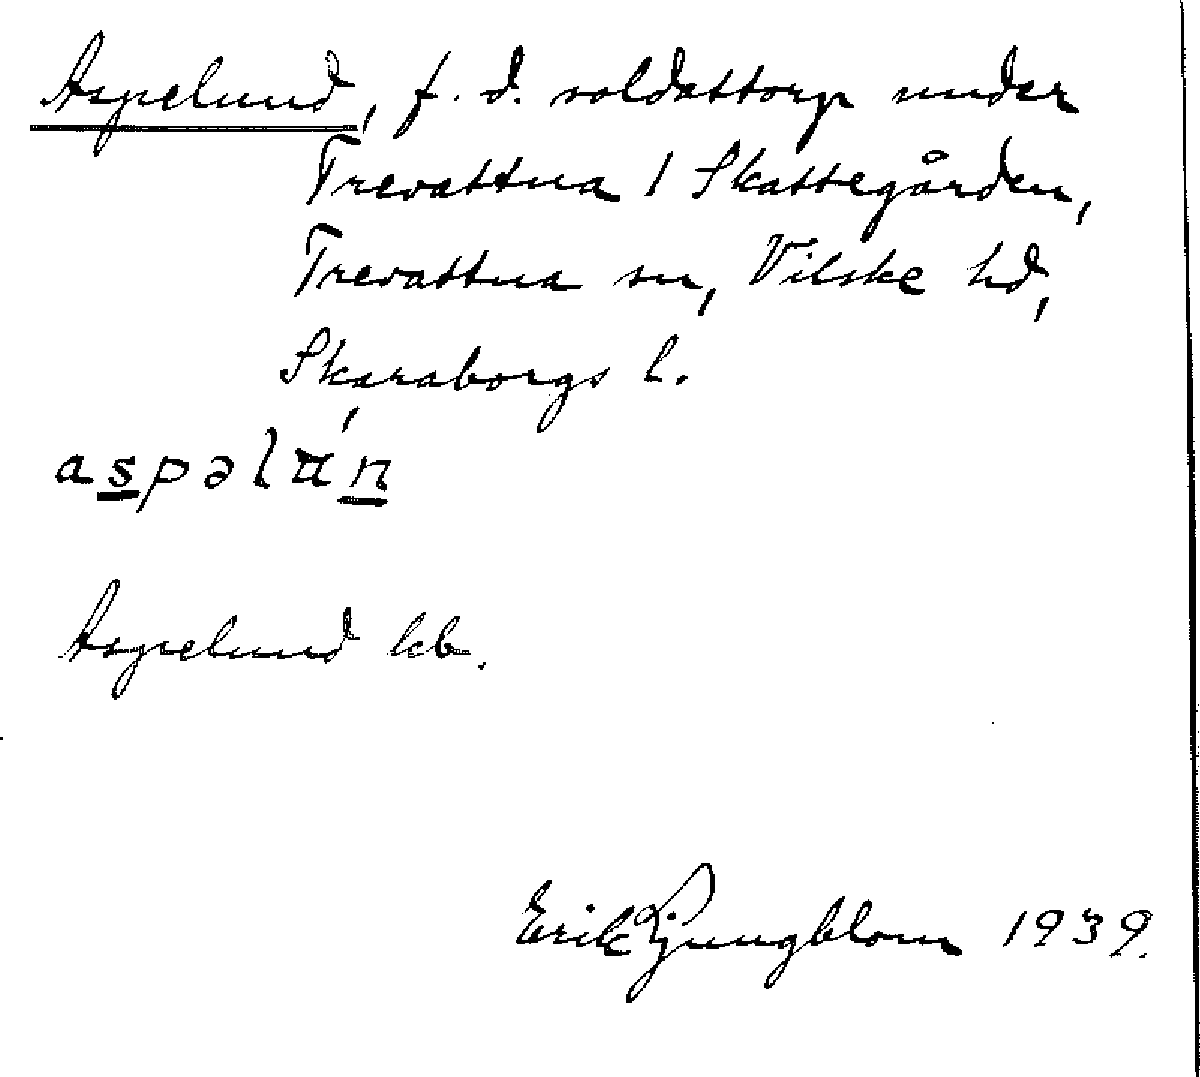 Aspelund, f. d. soldattorp under
Trevattna 1 Skattegården,
Trevattna sn, Vilske hd,
Skaraborgs l.
Aspelund kb.
Erik Ljungblom 1939.